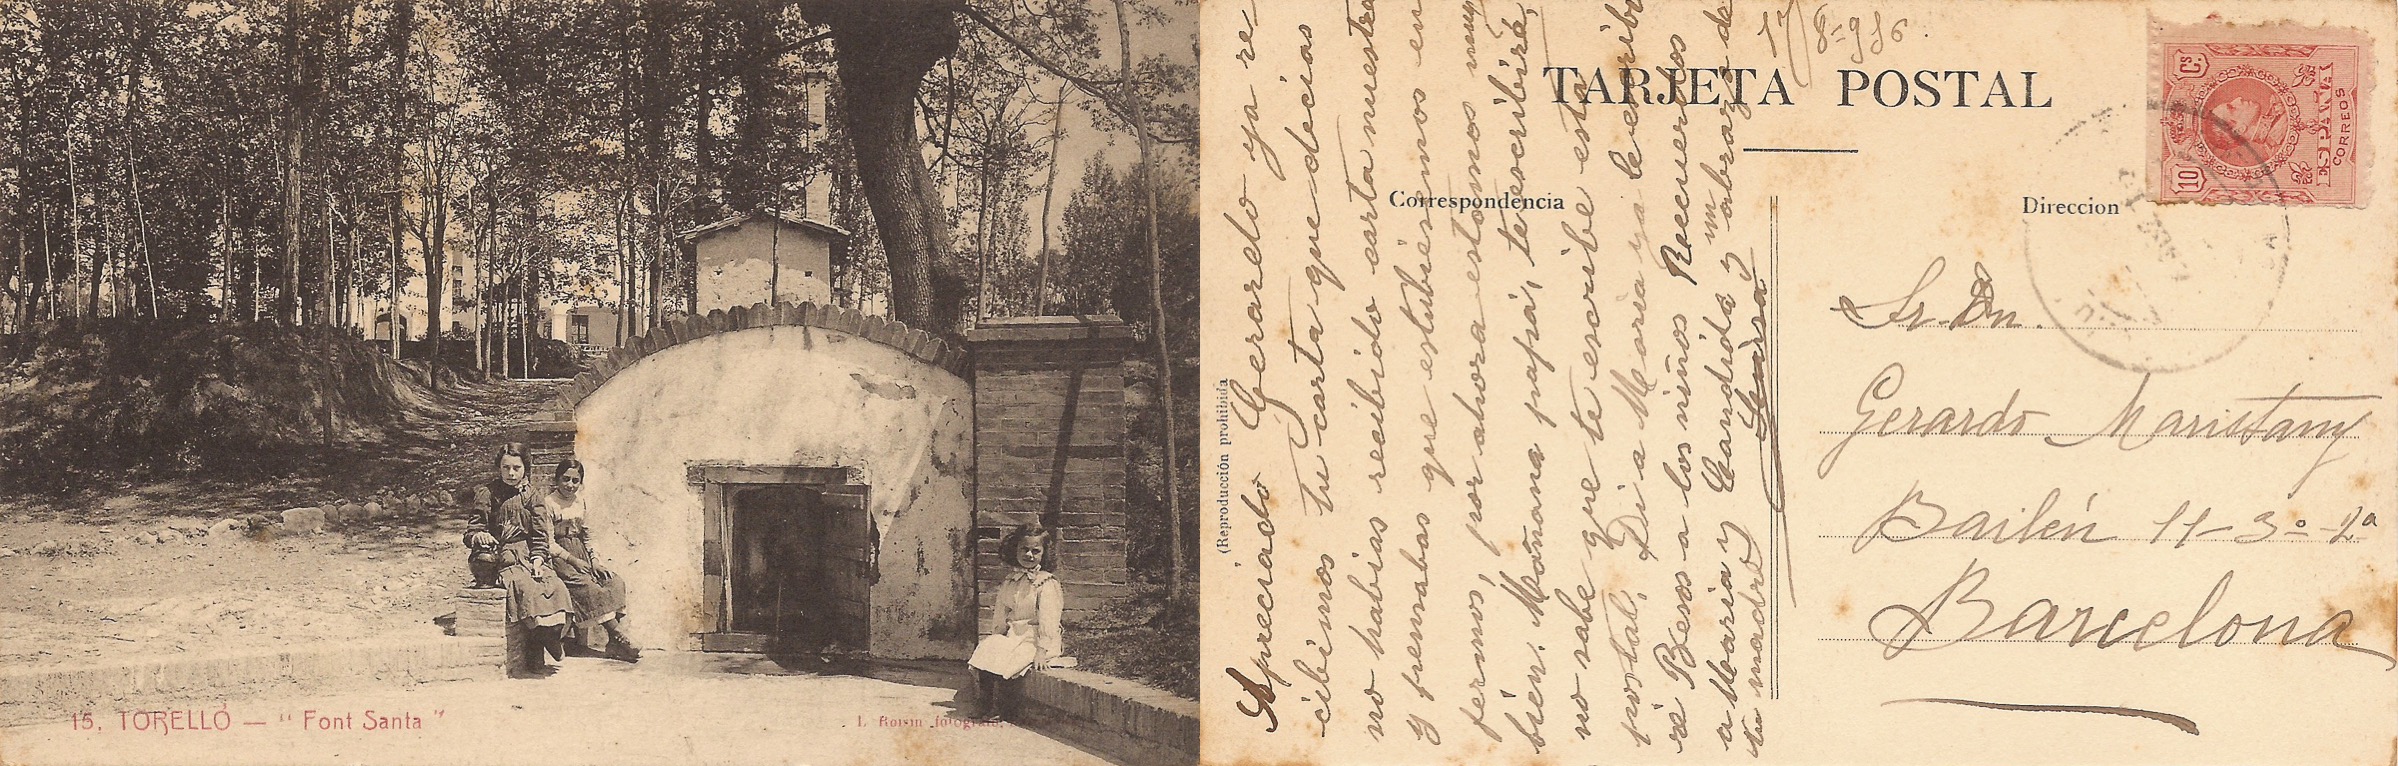 15. TORELLÓ — "Font Santa"
L. Roisin fotógrafo.
17/8-916.
TARJETA POSTAL
10 Cs.
ESPAÑA
CORREOS
Correspondencia
Direccion
(Reproducción prohibida
Apreciado Gerardo ya re-
cibimos tu carta que decias
no habias recibido carta nuestra
y pensabas que estubiésemos en
fermos, por ahora estamos muy
bien. Mañana papá, te escribirá,
no sabe que te escribe esta
postal. Di a Maria ya le escribi
ré Besos a los niños Recuerdos
a Maria y Candida y un abrazo de
tu madre
Sr. Dn.
Gerardo Maristany
Bailén 11-3º-2ª
Barcelona